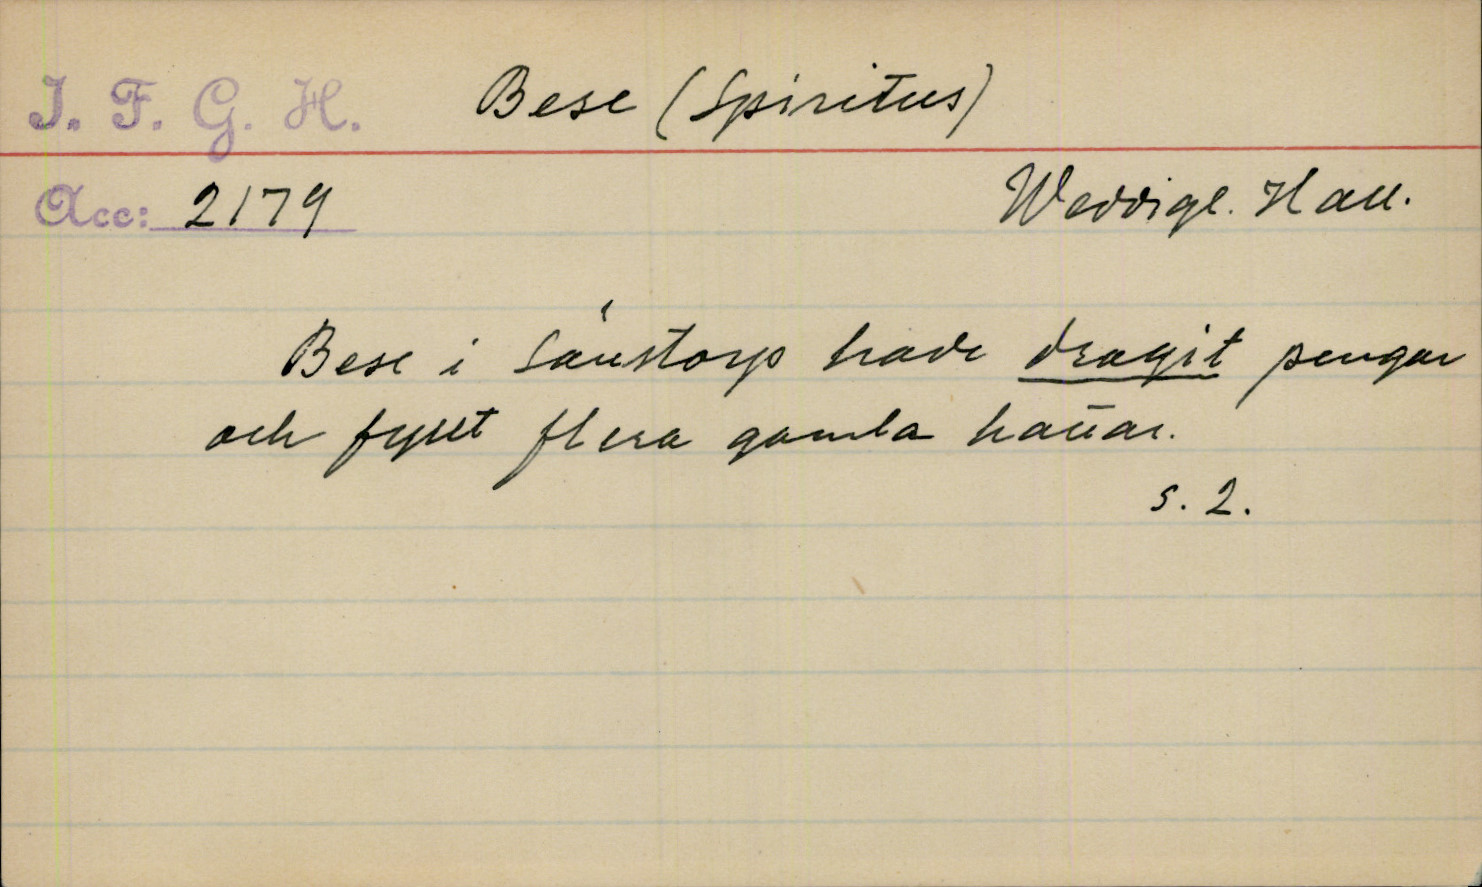 I. F. G. H. Bese (Spiritus)
Acc: 2179 Weddigl. Hall.
Bese i Sänstorp hade dragit pengar
och fyllt flera gamla hattar.
s. 2.